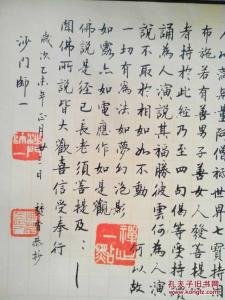 人以滿無量阿僧祇世界七寶持
布施若有善男子善女人發菩提
者持於此經乃至四句偈等受持
誦為人演說其福勝彼云何為人演
說不取於相如如不動 何以故
一切有為法如夢幻泡影
如露亦如電應作如是觀
佛說是經已長老須菩提
聞佛所說皆大歡喜信受奉行
歲次乙未年正月 日 恭抄
沙門師一